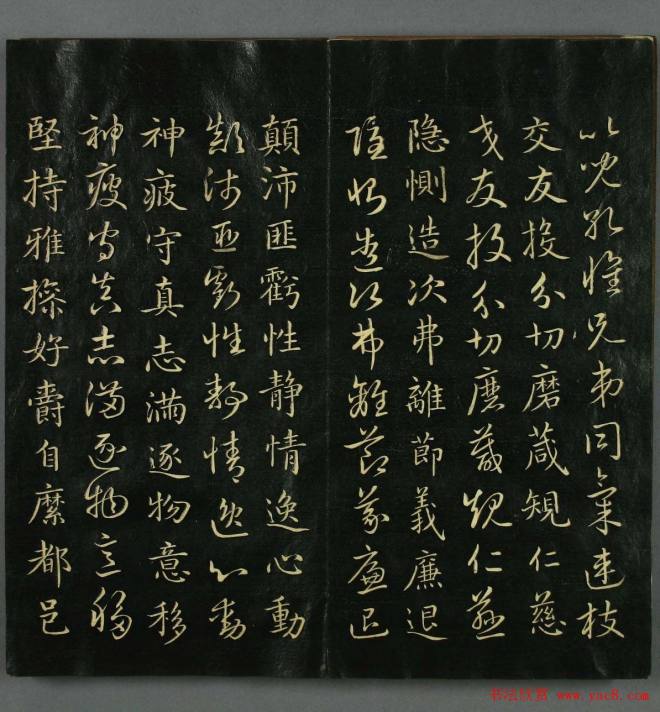 以比兒懷兄弟同氣連枝
交友投分切磨葴䂓仁慈
交友投分切磨箴規仁慈
隐惻造次弗離節義廉退
隱惻造次弗離節義廉退
顛沛匪虧性静情逸心動
顛沛匪虧性靜情逸心動
神疲守真志滿逐物意移
神疲守真志滿逐物意移
堅持雅操好爵自縻都邑
书法欣赏 www.yac8.com